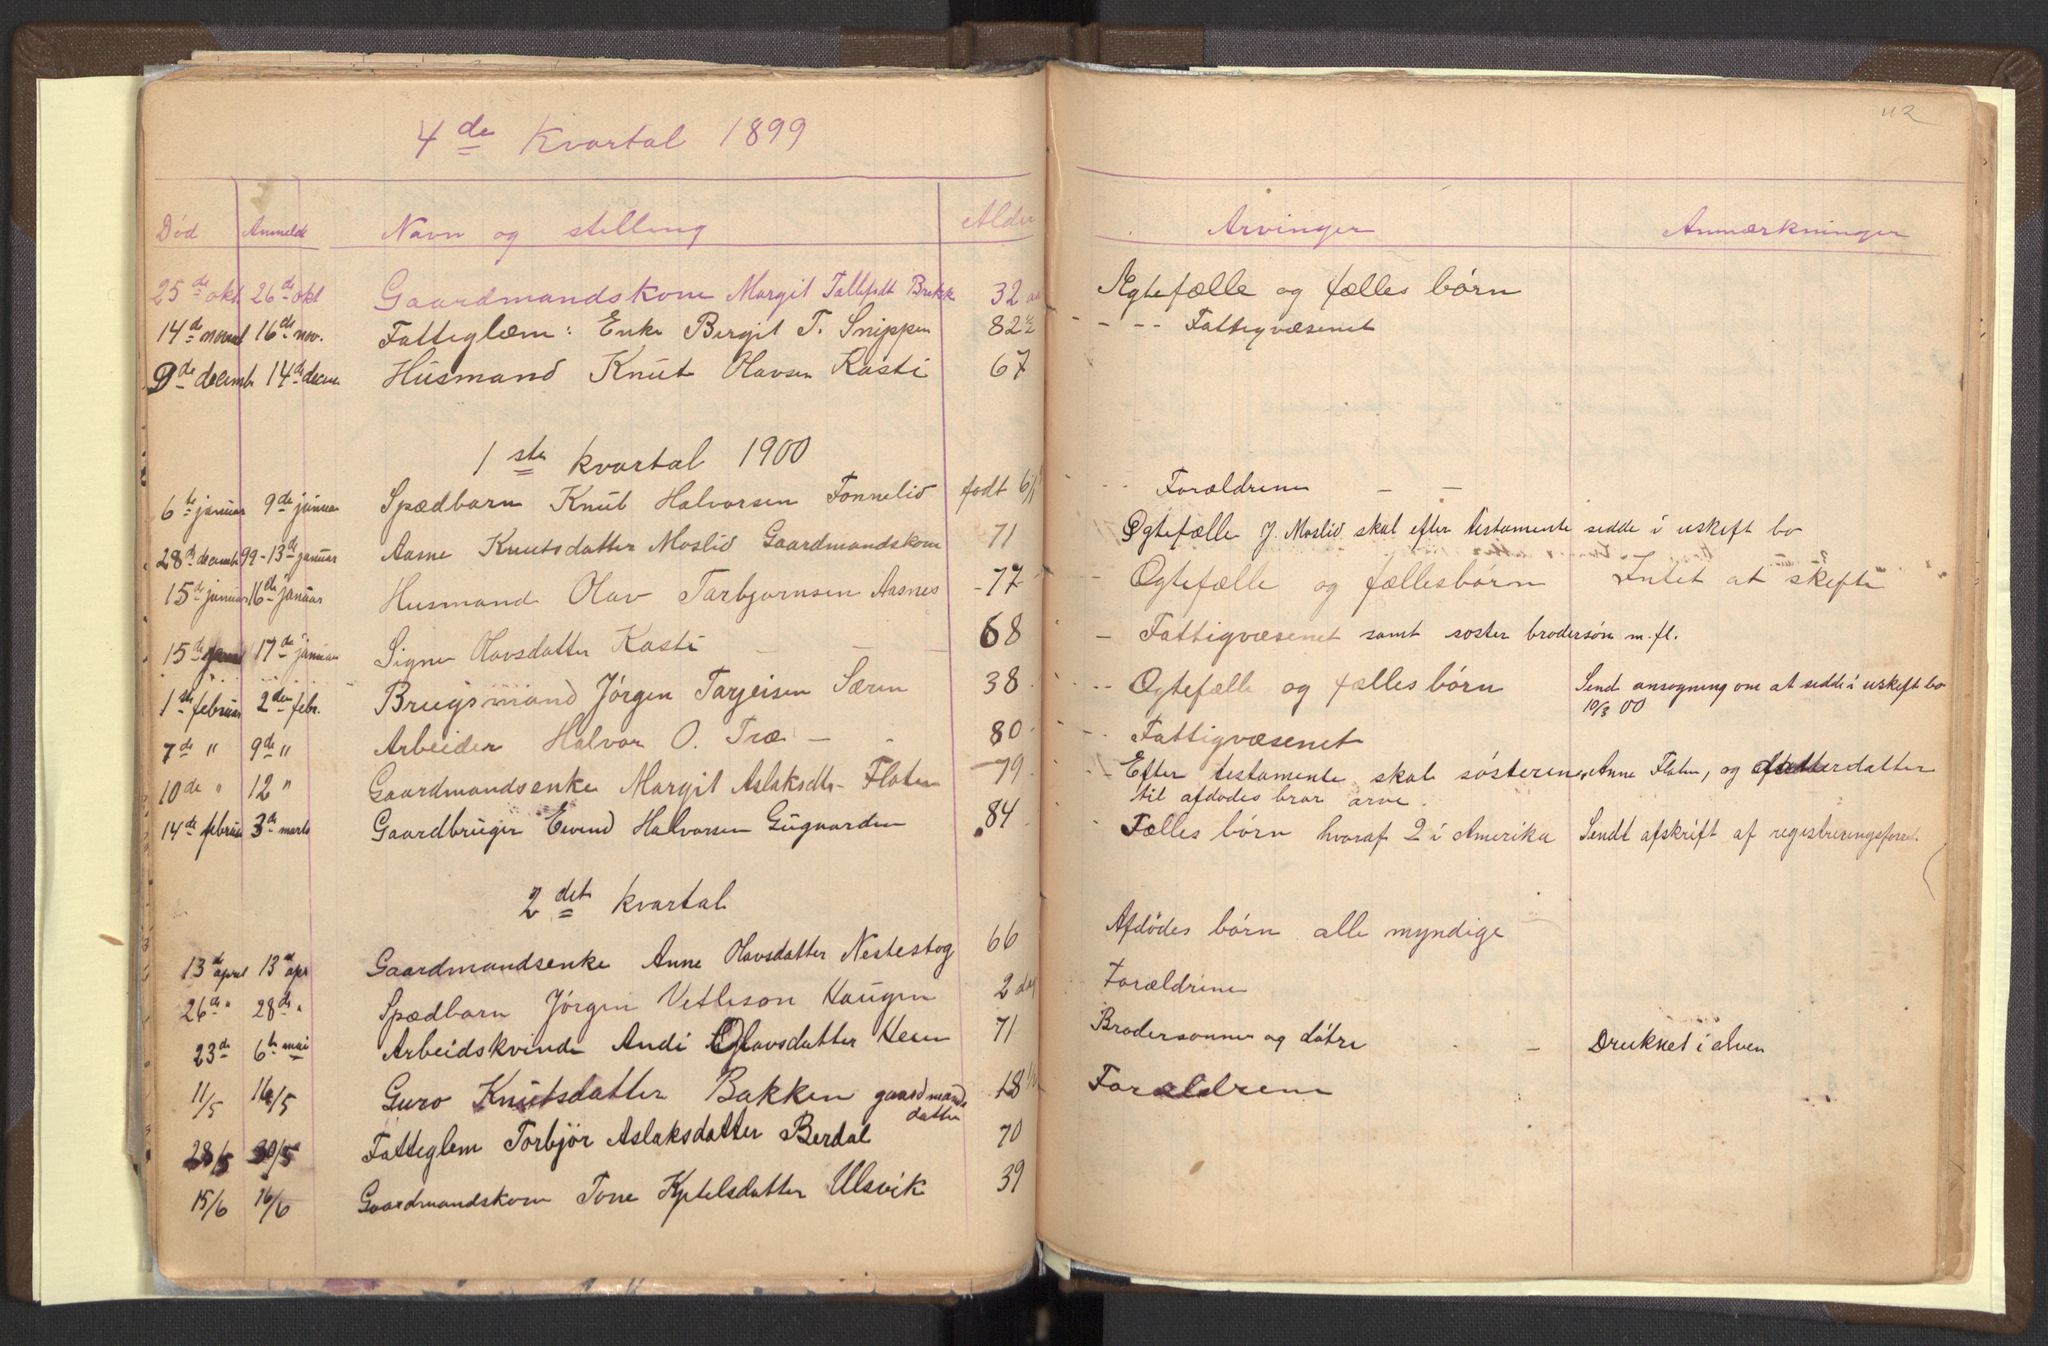 112
4de Kvartal 1899
Død Anmeldt Navn og stilling Alder Arvinger Anmærkninger
25de okt 26de okt Gaardmandskone Margit Tallefdt Brekk 32 Ægtefælle og fælles børn
14de novembr 16de nov. Fatteglem: Enke Bergit T. Snippen 82½ - - - Fattigvæsenet
9de decembr 14de decem Husmand Knut Olavsen Kasti 67
1ste kvartal 1900
6te januar 9de januar Spædbarn Knut Halvorsen Tonnelid født 6/1 - - Forældrene - -
28de decembr 99 - 13de januar Aasne Knutsdatter Moslid Gaardmandskone 71 Ogtefælle J. Moslid skal efter testamente sidde i uskeft bo
15de januar 16de januar Husmand Olav Tarbjørnsen Aasnes - 77 - Ogtefælle og fællesbørn Intet at skefte
15de januar 17de januar Signe Olavsdatter Kasti - - - 68 - Fattigvæsenet samt søster brodersøn m.fl.
1ste februar 2den febr. Brugsmand Jørgen Targeisen Særen 38 - - - Ogtefælle og fælles børn Sendt ansøgning om at sidde i uskeft bo
10/3 00
7de " 9de " Arbeider Halvor O. Træ - - 80 - - - Fattigvæsenet
10de " 12 " Gaardmandsenke Margit Aslaksdtr - Flaten 79 - Efter testamente skal søsteren Anne Flaten, og datterdatter
til afdødes bror arve.
14de februar 3de marts Gaardbruger Eivind Halvorsen Gugaarden 84 - Fælles børn hvoraf 2 i Amerika Sendt afskrift af registreringsforret.
2det kvartal
13de april 13de apr Gaardmandsenke Anne Olavsdatter Nestestog 66 Afdødes børn alle myndige
26de " 28de " Spædbarn Jørgen Vetleson Haugen 2 dag Forældrene
23de 6te mai Arbeidskvinde Andi Olavsdatter Heun 71 Brodersønner og døtre - - Druknet i elven
11/5 16/5 Guro Knutsdatter Bakken gaardmands
datter 18½ Forældrene
28/5 30/5 Fatteglem Torbjør Aslaksdatter Berdal 70
15/6 16/6 Gaardmandskone Tone Kjetelsdatter Ulsvik 39